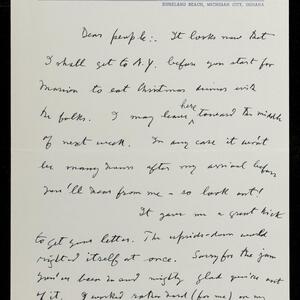 DUNELAND BEACH, MICHIGAN CITY, INDIANA
Dear people:. It looks now that
I shall get to N.Y. before you start for
Marion to eat Christmas dinner with
the folks. I may leave here toward the middle
of next week. In any case it won't
be many hours after my arrival before
you'll hear from me – so look out!
It gave me a great kick
to get your letter. The upside-down world
righted itself at once. Sorry for the jam
you've been in and mighty glad you're out
of it. I worked rather hard (for me) on my